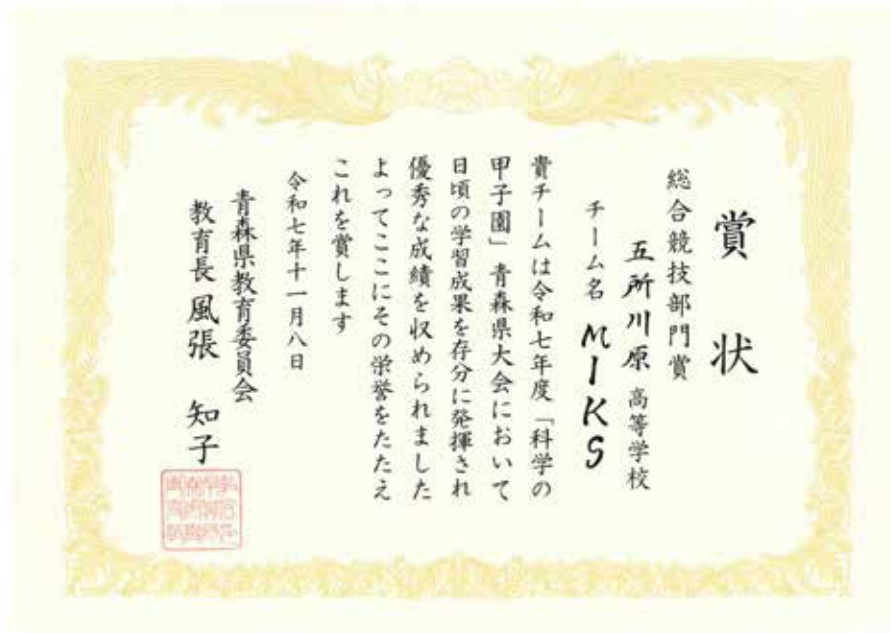 賞状
総合競技部門賞
五所川原高等学校
チーム名 MIKS
貴チームは令和七年度「科学の
甲子園」青森県大会において
日頃の学習成果を存分に発揮され
優秀な成績を収められました
よってここにその栄誉をたたえ
これを賞します
令和七年十一月八日
青森県教育委員会
教育長 風張 知子